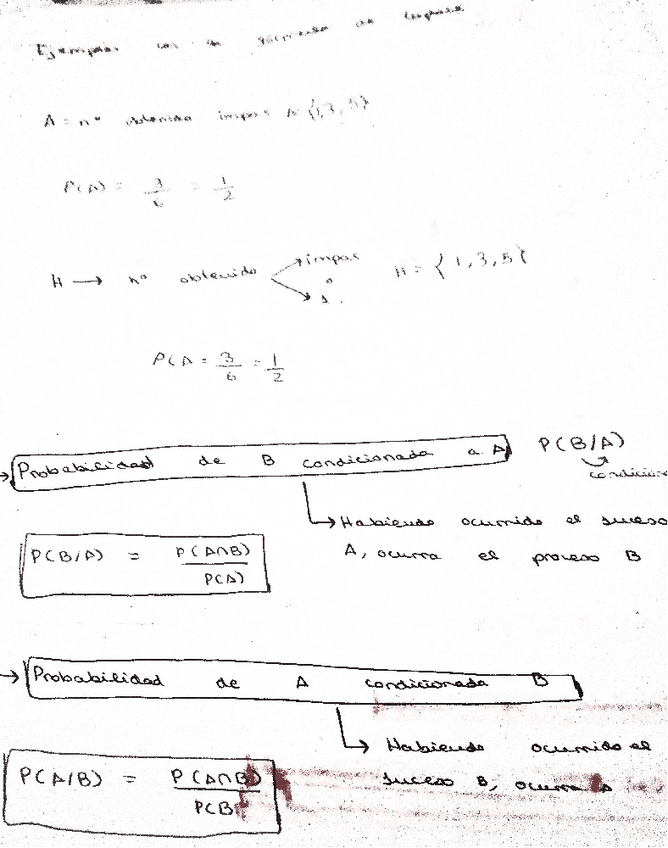 Ejemplos
A = nº obtenido impar A={1,3,5}
P(A) = 3/6 = 1/2
H → nº obtenido impar o 1. H = {1,3,5}
P(A = 3/6 = 1/2
Probabilidad de B condicionada a A P(B/A)
Habiendo ocurrido el suceso
A, ocurra el proceso B
P(B/A) = P(A∩B)/P(A)
Probabilidad de A condicionada B
Habiendo ocurrido el
suceso B, ocurra A
P(A/B) = P(A∩B)/P(B)